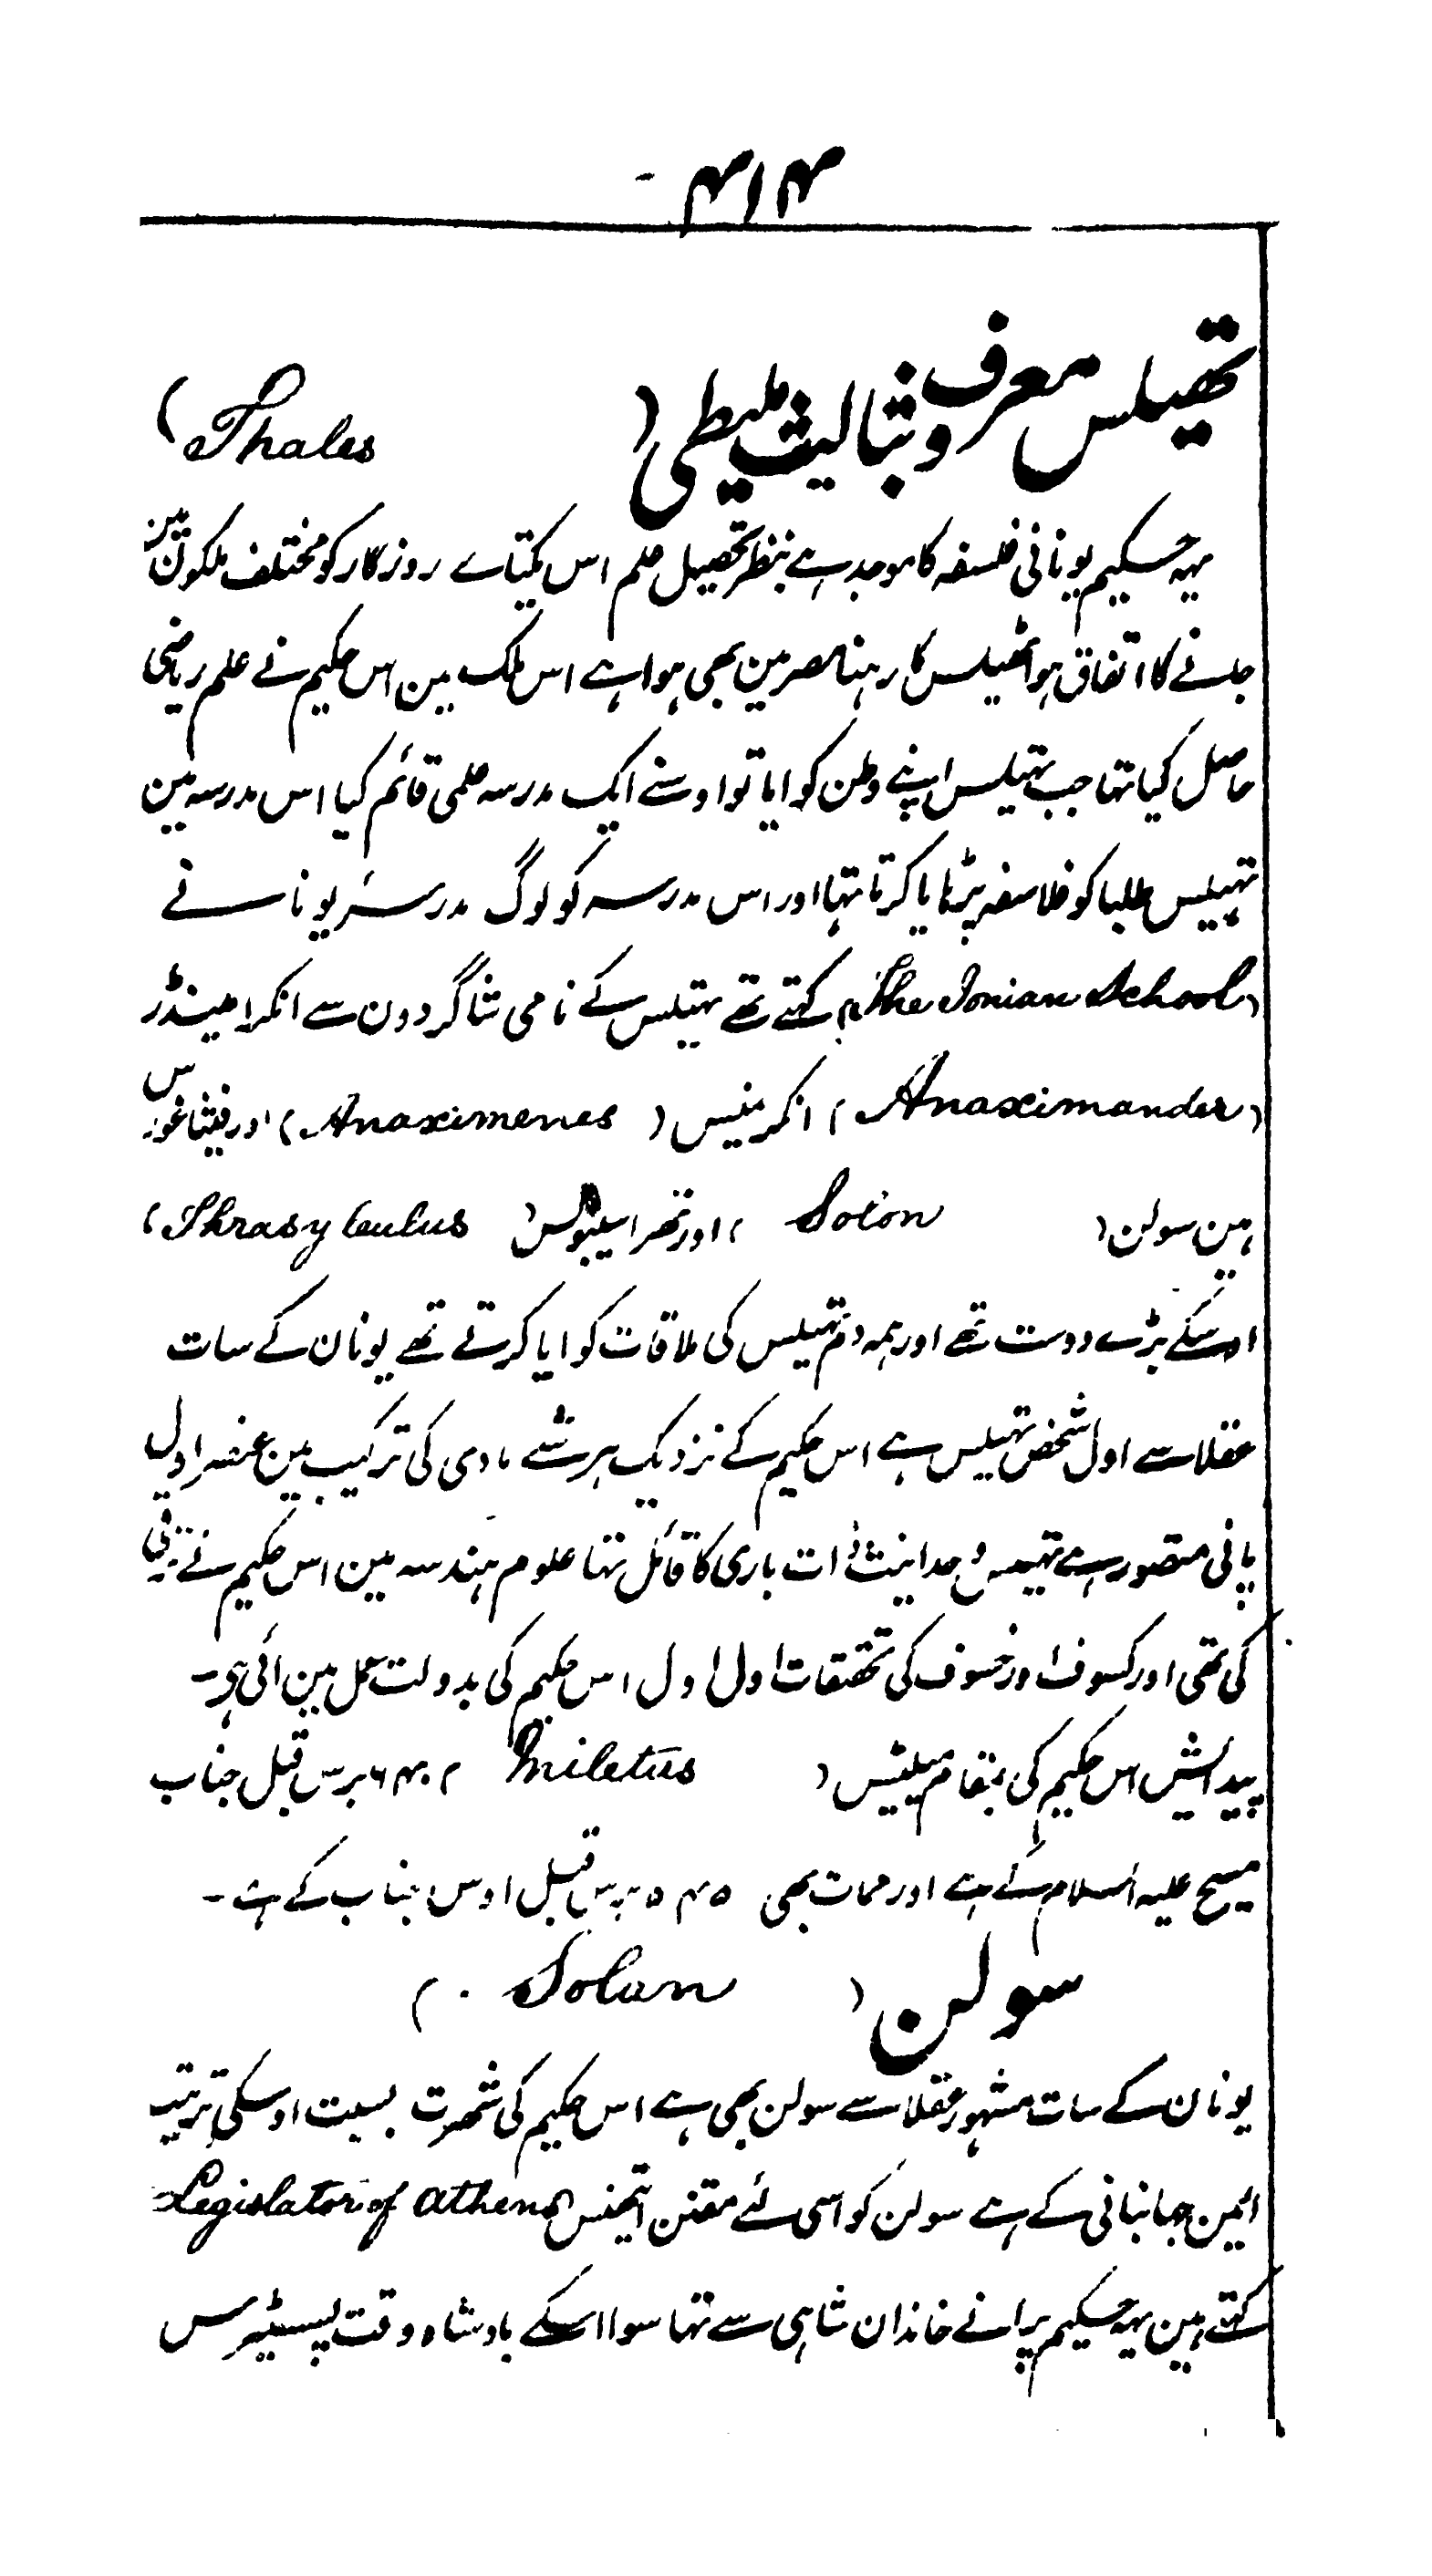 ۴۱۴ -
تھیلس معروف ثبالیث ملیطی (Thales)
یہہ حکیم یونانی فلسفہ کا موجد ہے بنظر تحصیل علم اس یکتاے روزگار کو مختلف ملکون مین
جانے کا اتفاق ہوا تھیلس کا رہنا مصر مین بھی ہوا ہے اس ملک مین اس حکیم نے علم ریاضی
حاصل کیا تہا جب تہیلس اپنے وطن کو ایا تو اوسنے ایک مدرسہ علمی قائم کیا اس مدرسہ مین
تہیلس طلبا کو فلاسفہ پڑہایا کرتا تہا اور اس مدرسہ کو لوگ مدرسۂ یونانے
(The Ionian School) کہتے تھے تہیلس کے نامی شاگردون سے انکزامینڈر
(Anaximander) انکزمنیس (Anaximenes) اور فیثاغورس
ہین سولن (Solon) اور تھراسیبولس (Thrasybulus)
اوسکے بڑے دوست تھے اور ہمہ دم تہیلس کی ملاقات کو ایا کرتے تھے یونان کے سات
عقلا سے اول شخص تہیلس ہے اس حکیم کے نزدیک ہر شے مادی کی ترکیب مین عنصر اول
پانی متصور ہے تہیلس وحدانیت ذات باری کا قائل تہا علوم ہندسہ مین اس حکیم نے ترقی
کی تھی اور کسوف اور خسوف کی تحقیقات اول اول اس حکیم کی بدولت عمل مین ائی ہی -
پیدایش اس حکیم کی بمقام میلیٹس (Miletus) ۶۴۰ برس قبل جناب
مسیح علیہ السلام کے ہے اور ممات بھی ۵۴۵ برس قبل اوس جناب کے ہے -
سولن (Solan)
یونان کے سات مشہور عقلا سے سولن بھی ہے اس حکیم کی شہرت بسبب اوسکی ترتیب
ائین جہانبانی کے ہے سولن کو اسی لئے مقنن اتھنس (Legislator of Athens
کہتے ہین یہہ حکیم پرانے خاندان شاہی سے تہا سوا اسکے بادشاہ وقت پسسٹیرس